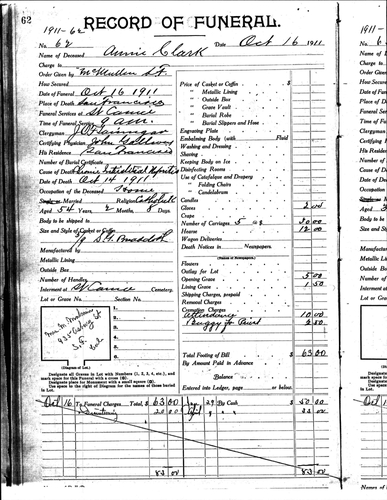 62
RECORD OF FUNERAL.
1911-62
No. 62 Date Oct 16 1911
Name of Deceased Annie Clark
Charge to
Order Given by McMullen S.F.
Hour Secured
Date of Funeral Oct 16 1911
Place of Death San Francisco
Funeral Services at St Connice
Time of Funeral Service 9 a.m.
Clergyman
Certifying Physician John Galloway
His Residence San Francisco
Number of Burial Certificate
Cause of Death Chronic Interstitial Nephritis
Date of Death Oct 14 1911
Occupation of the Deceased
Single or Married Religion Catholic
Aged 54 Years 2 Months 8 Days
Body to be shipped to
Size and Style of Casket or Coffin
Manufactured by
Metallic Lining
Outside Box
Number of Handles
Interment at St Connice Cemetery.
Lot or Grave No. Section No.
1.
2.
3.
4.
5.
6.
(Diagram of Lot.)
Designate all Graves in Lot with Numbers (1, 2, 3, 4, etc.), and
mark space for this Funeral with a cross
Designate place for Monument with a small square
Use the space to the right of Diagram for the names of those buried
in Lot.
Price of Casket or Coffin $
" Metallic Lining
" Outside Box
" Grave Vault
" Burial Robe
" Burial Slippers and Hose
Engraving Plate
Embalming Body (with Fluid
Washing and Dressing
Shaving
Keeping Body on Ice
Disinfecting Rooms
Use of Catafalque and Drapery
" Folding Chairs
" Candelabrum
Candles
Gloves 2.00
Crape
Number of Carriages 5 30.00
Hearse 12.00
Wagon Deliveries
Death Notices in Newspapers.
(Names of Newspapers)
Flowers
Outlay for Lot
Opening Grave 5.00
Lining Grave 1.50
Shipping Charges, prepaid
Removal Charges
Cremation Charges
Attendance 10.00
Buggy for Priest 2.50
Total Footing of Bill $ 63.00
By Amount Paid in Advance
Balance
Entered into Ledger, page or below.
Oct 16 To Funeral Charges Total, $ 63 00 Jan 29 By Cash $ 50 00
20 00 April 9 " " 33 00
83 00 83 00
1911-
No. 6